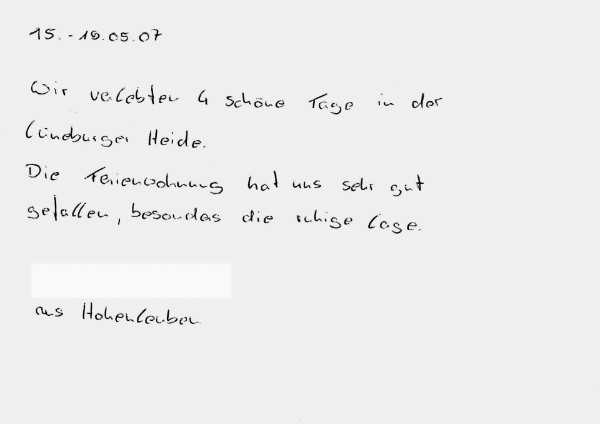 15. - 19.05.07
Wir verlebten 4 schöne Tage in der
Lüneburger Heide.
Die Ferienwohnung hat uns sehr gut
gefallen, besonders die ruhige Lage.
aus Hohenleuben